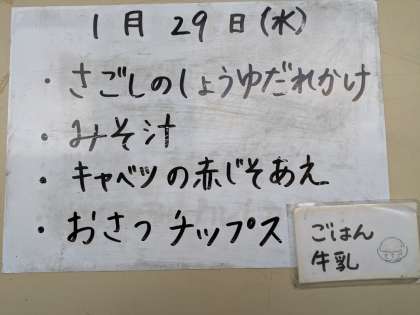 1月29日(水)
・さごしのしょうゆだれかけ
・みそ汁
・キャベツの赤じそあえ
・おさつチップス
ごはん
牛乳